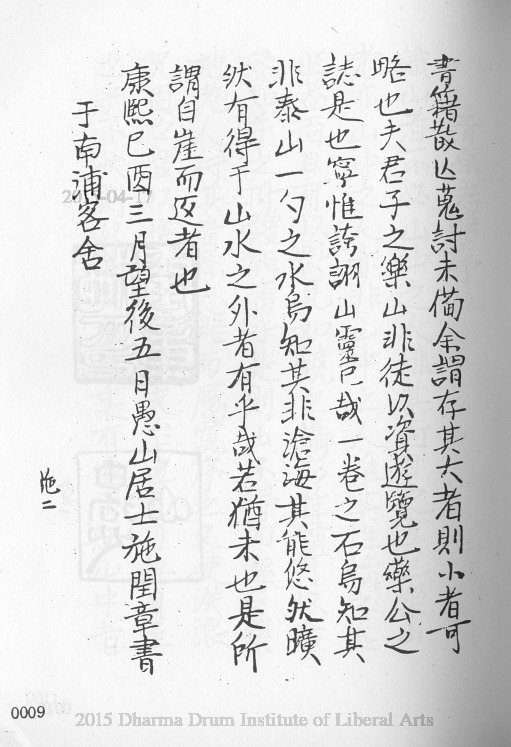 書籍散亾蒐討未備余謂存其大者則小者可
略也夫君子之樂山非徒以資遊覽也藥公之
誌是也寧惟誇詡山靈已哉一卷之石烏知其
非泰山一勺之水烏知其非滄海其能悠然曠
然有得于山水之外者有乎哉若猶未也是所
謂自崖而返者也
康熙己酉三月望後五日愚山居士施閏章書
于南浦客舍
施二
2015-04-17
0009
2015 Dharma Drum Institute of Liberal Arts